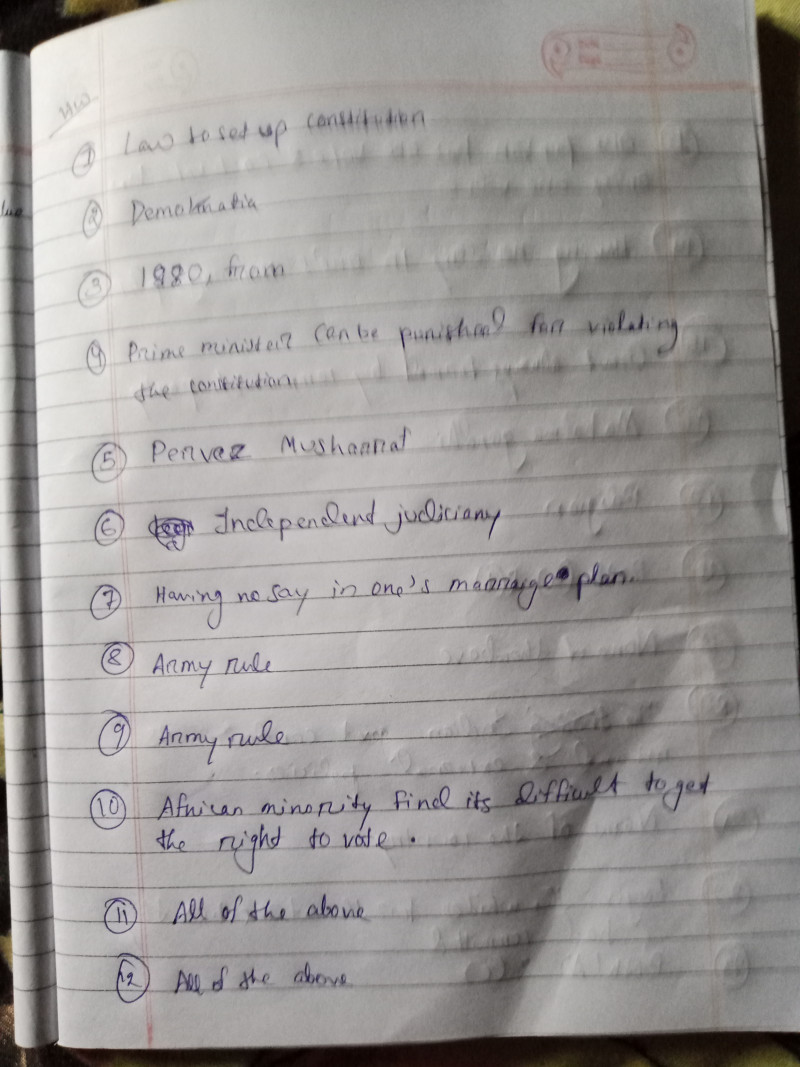 HW
① Law to set up constitution
② Demokratia
③ 1980, from
④ Prime minister can be punished for violating
the constitution.
⑤ Pervez Musharraf
⑥ Independent judiciary
⑦ Having no say in one's marriage plan.
⑧ Army rule
⑨ Army rule
⑩ African minority find its difficult to get
the right to vote.
⑪ All of the above
⑫ All of the above